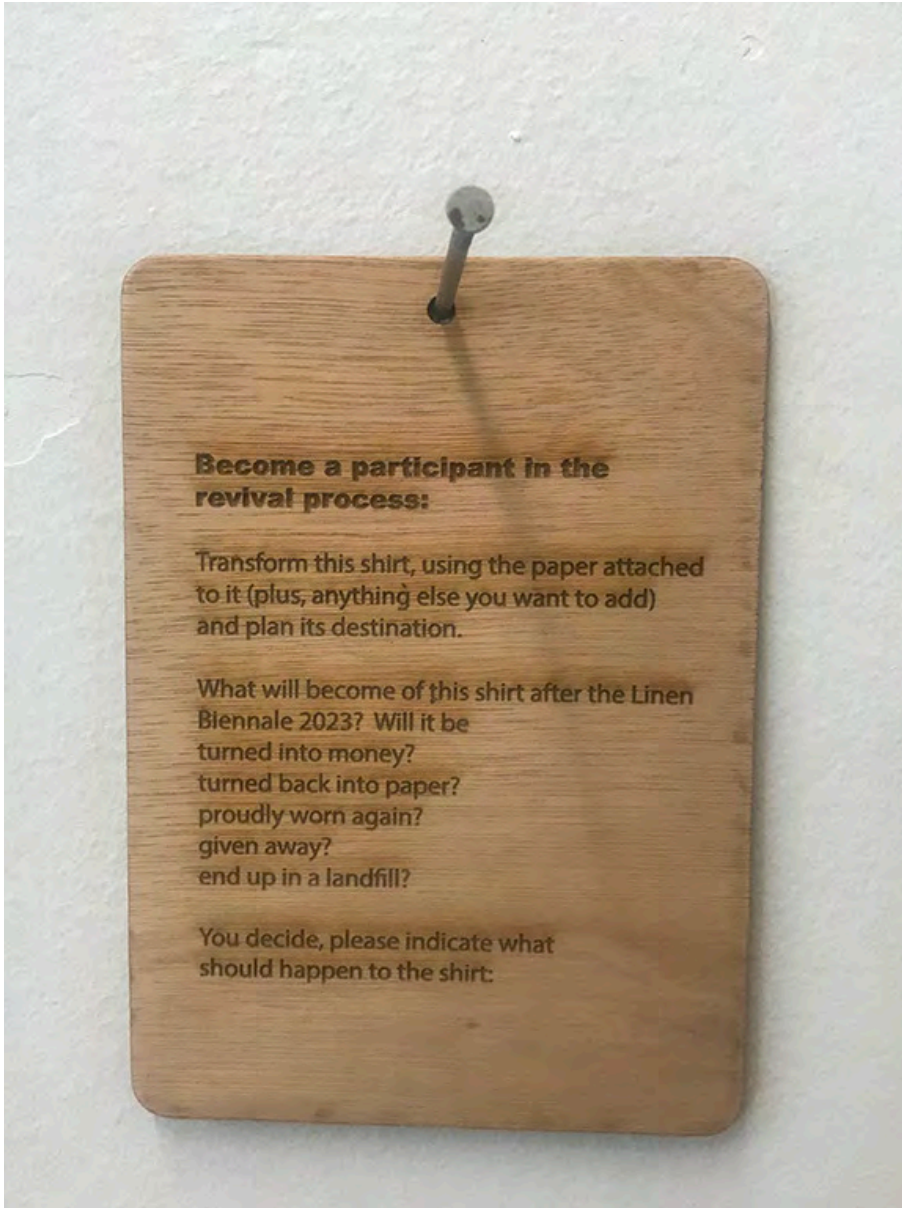 Become a participant in the
revival process:
Transform this shirt, using the paper attached
to it (plus, anything else you want to add)
and plan its destination.
What will become of this shirt after the Linen
Biennale 2023? Will it be
turned into money?
turned back into paper?
proudly worn again?
given away?
end up in a landfill?
You decide, please indicate what
should happen to the shirt: